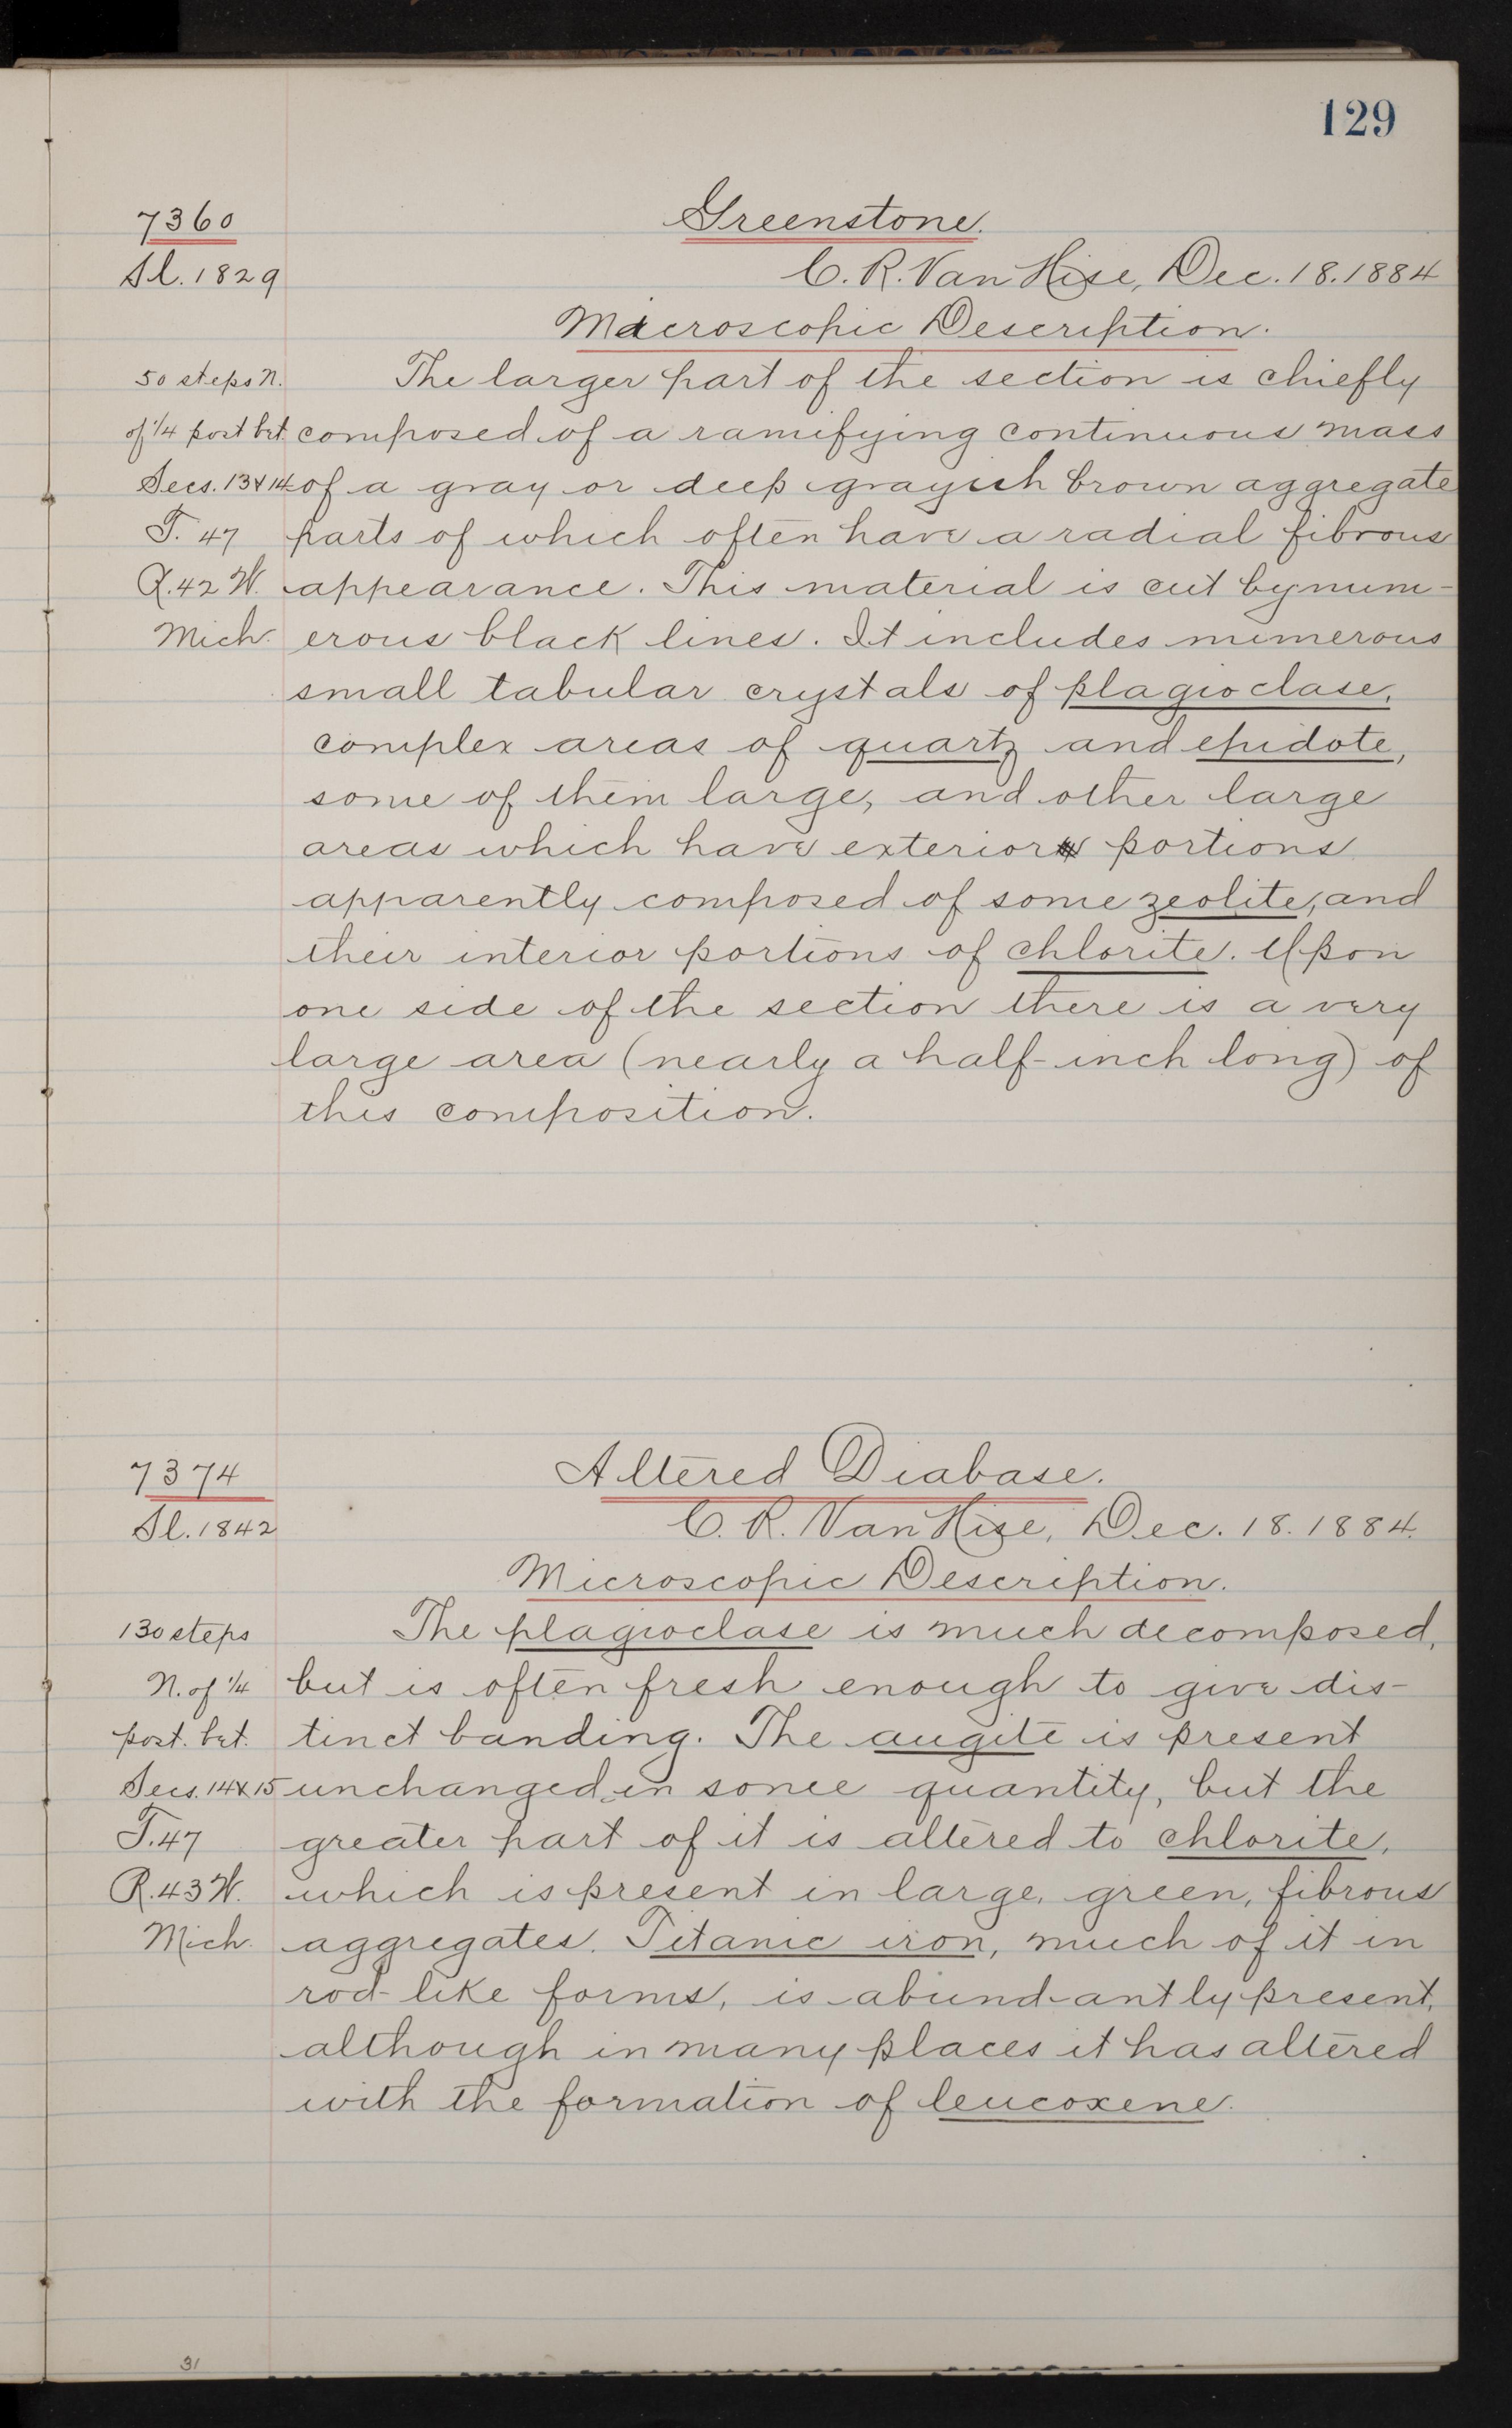 129
7360
Greenstone.
Sl. 1829
C. R. Van Hise, Dec. 18. 1884
Macroscopic Description.
50 steps N. The larger part of the section is chiefly
of 1/4 post bet. composed of a ramifying continuous mass
Secs. 13 & 14 of a gray or deep grayish brown aggregate
T. 47 parts of which often have a radial fibrous
R. 42 W. appearance. This material is cut by num-
Mich. erous black lines. It includes numerous
small tabular crystals of plagioclase,
complex areas of quartz and epidote,
some of them large, and other large
areas which have exterior portions
apparently composed of some zeolite, and
their interior portions of chlorite. Upon
one side of the section there is a very
large area (nearly a half-inch long) of
this composition.
7374
Altered Diabase.
Sl. 1842
C. R. Van Hise, Dec. 18. 1884.
Microscopic Description.
130 steps The plagioclase is much decomposed,
N. of 1/4 but is often fresh enough to give dis-
post. bet. tinct banding. The augite is present
Secs. 14 & 15 unchanged in some quantity, but the
T. 47 greater part of it is altered to chlorite,
R. 43 W. which is present in large, green, fibrous
Mich. aggregates. Titanic iron, much of it in
rod-like forms, is abundantly present,
although in many places it has altered
with the formation of leucoxene.
31